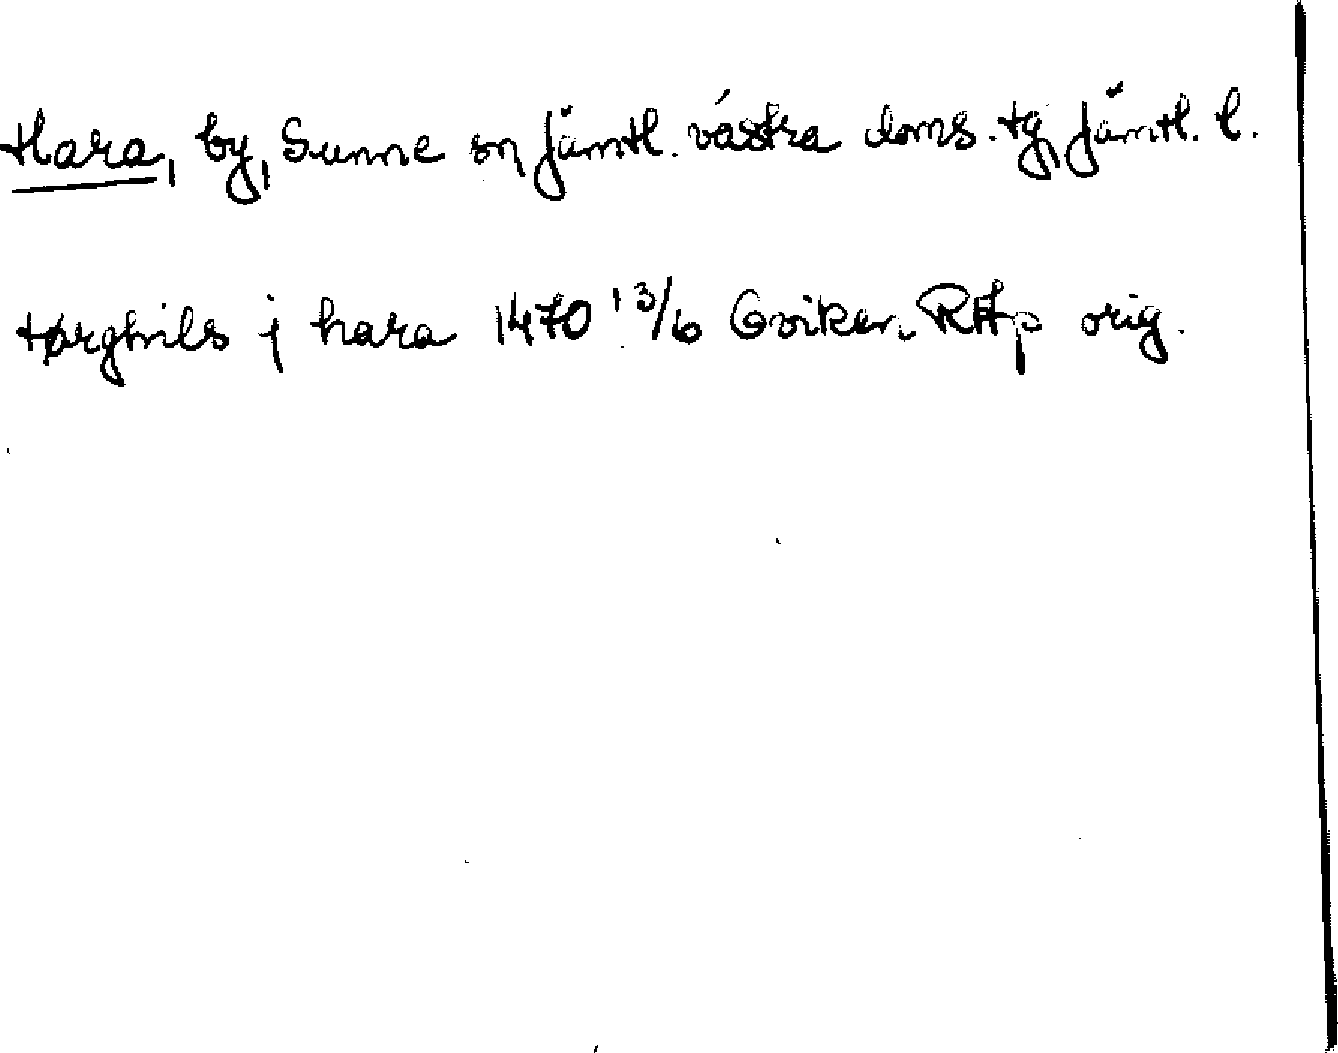 Hara, by, Sunne sn, Jämtl. västra doms. tg, Jämtl. l.
tørghils j hara 1470 13/6 Oviken. RAp orig.